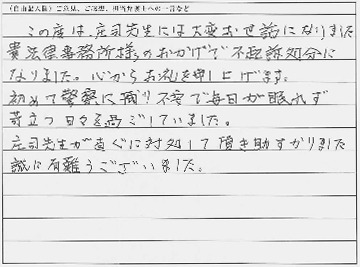 (自由記入欄)ご意見、ご感想、担当弁護士への一言など
この度は、庄司先生には大変お世話になりました
貴法律事務所様のおかげで不起訴処分に
なりました。心からお礼を申し上げます。
初めて警察に捕り不安で毎日が眠れず
苛立つ日々を過ごしていました。
庄司先生が直ぐに対処して頂き助かりました
誠に有難うございました。